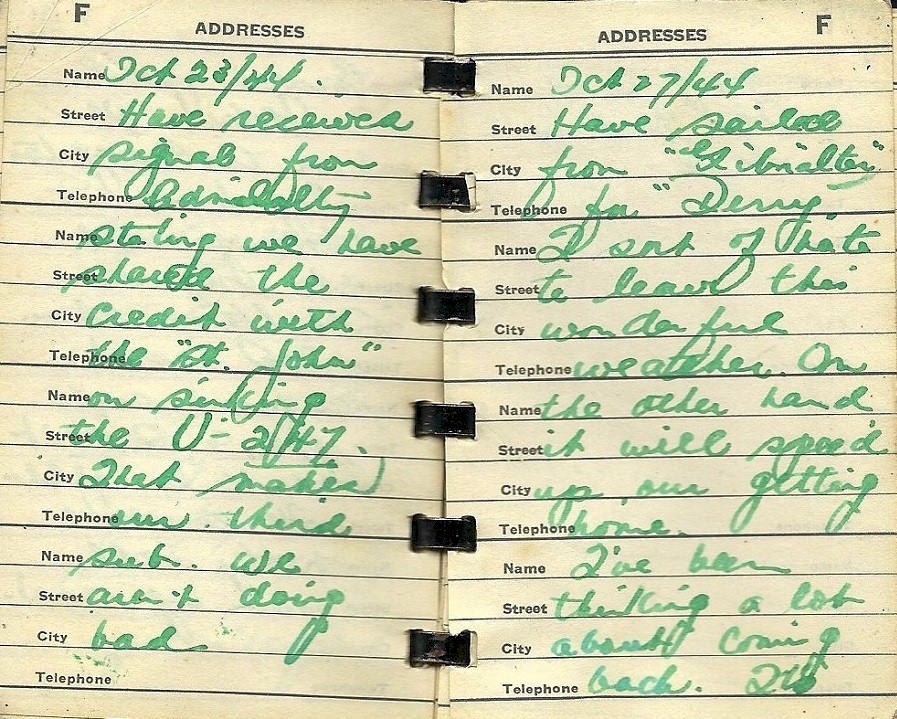 F
ADDRESSES
Name Oct 23/44.
Street Have received
City signal from
Telephone Admiralty
Name stating we have
Street shared the
City credit with
Telephone the "St. John"
Name on sinking
Street the U-247.
City That makes
Telephone our third
Name sub. We
Street aren't doing
City bad
Telephone
ADDRESSES
F
Name Oct 27/44
Street Have sailed
City from "Gibralter"
Telephone for "Derry"
Name I sort of hate
Street to leave this
City wonderful
Telephone weather. On
Name the other hand
Street it will speed
City up our getting
Telephone home.
Name I've been
Street thinking a lot
City about coming
Telephone back.